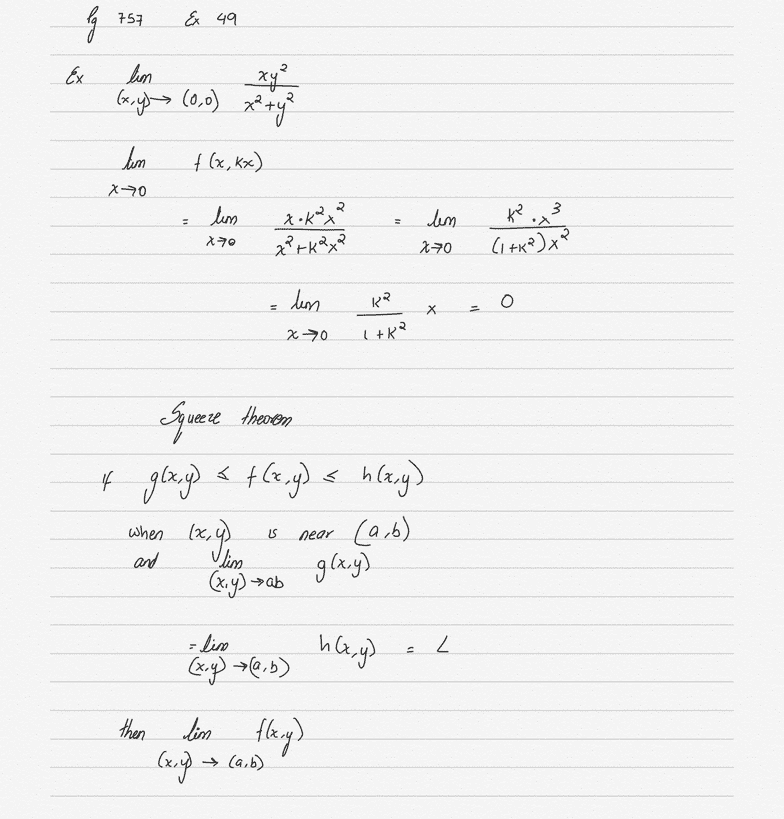 Pg 757 Ex 49
Ex lim (x,y)→(0,0) xy²/(x²+y²)
lim x→0 f(x,kx)
= lim x→0 x·k²x²/(x²+k²x²) = lim x→0 k²·x³/((1+k²)x²)
= lim x→0 k²/(1+k²) x = 0
Squeeze theorem
If g(x,y) ≤ f(x,y) ≤ h(x,y)
when (x,y) is near (a,b)
and lim (x,y)→ab g(x,y)
= lim (x,y)→(a,b) h(x,y) = L
then lim (x,y)→(a,b) f(x,y)